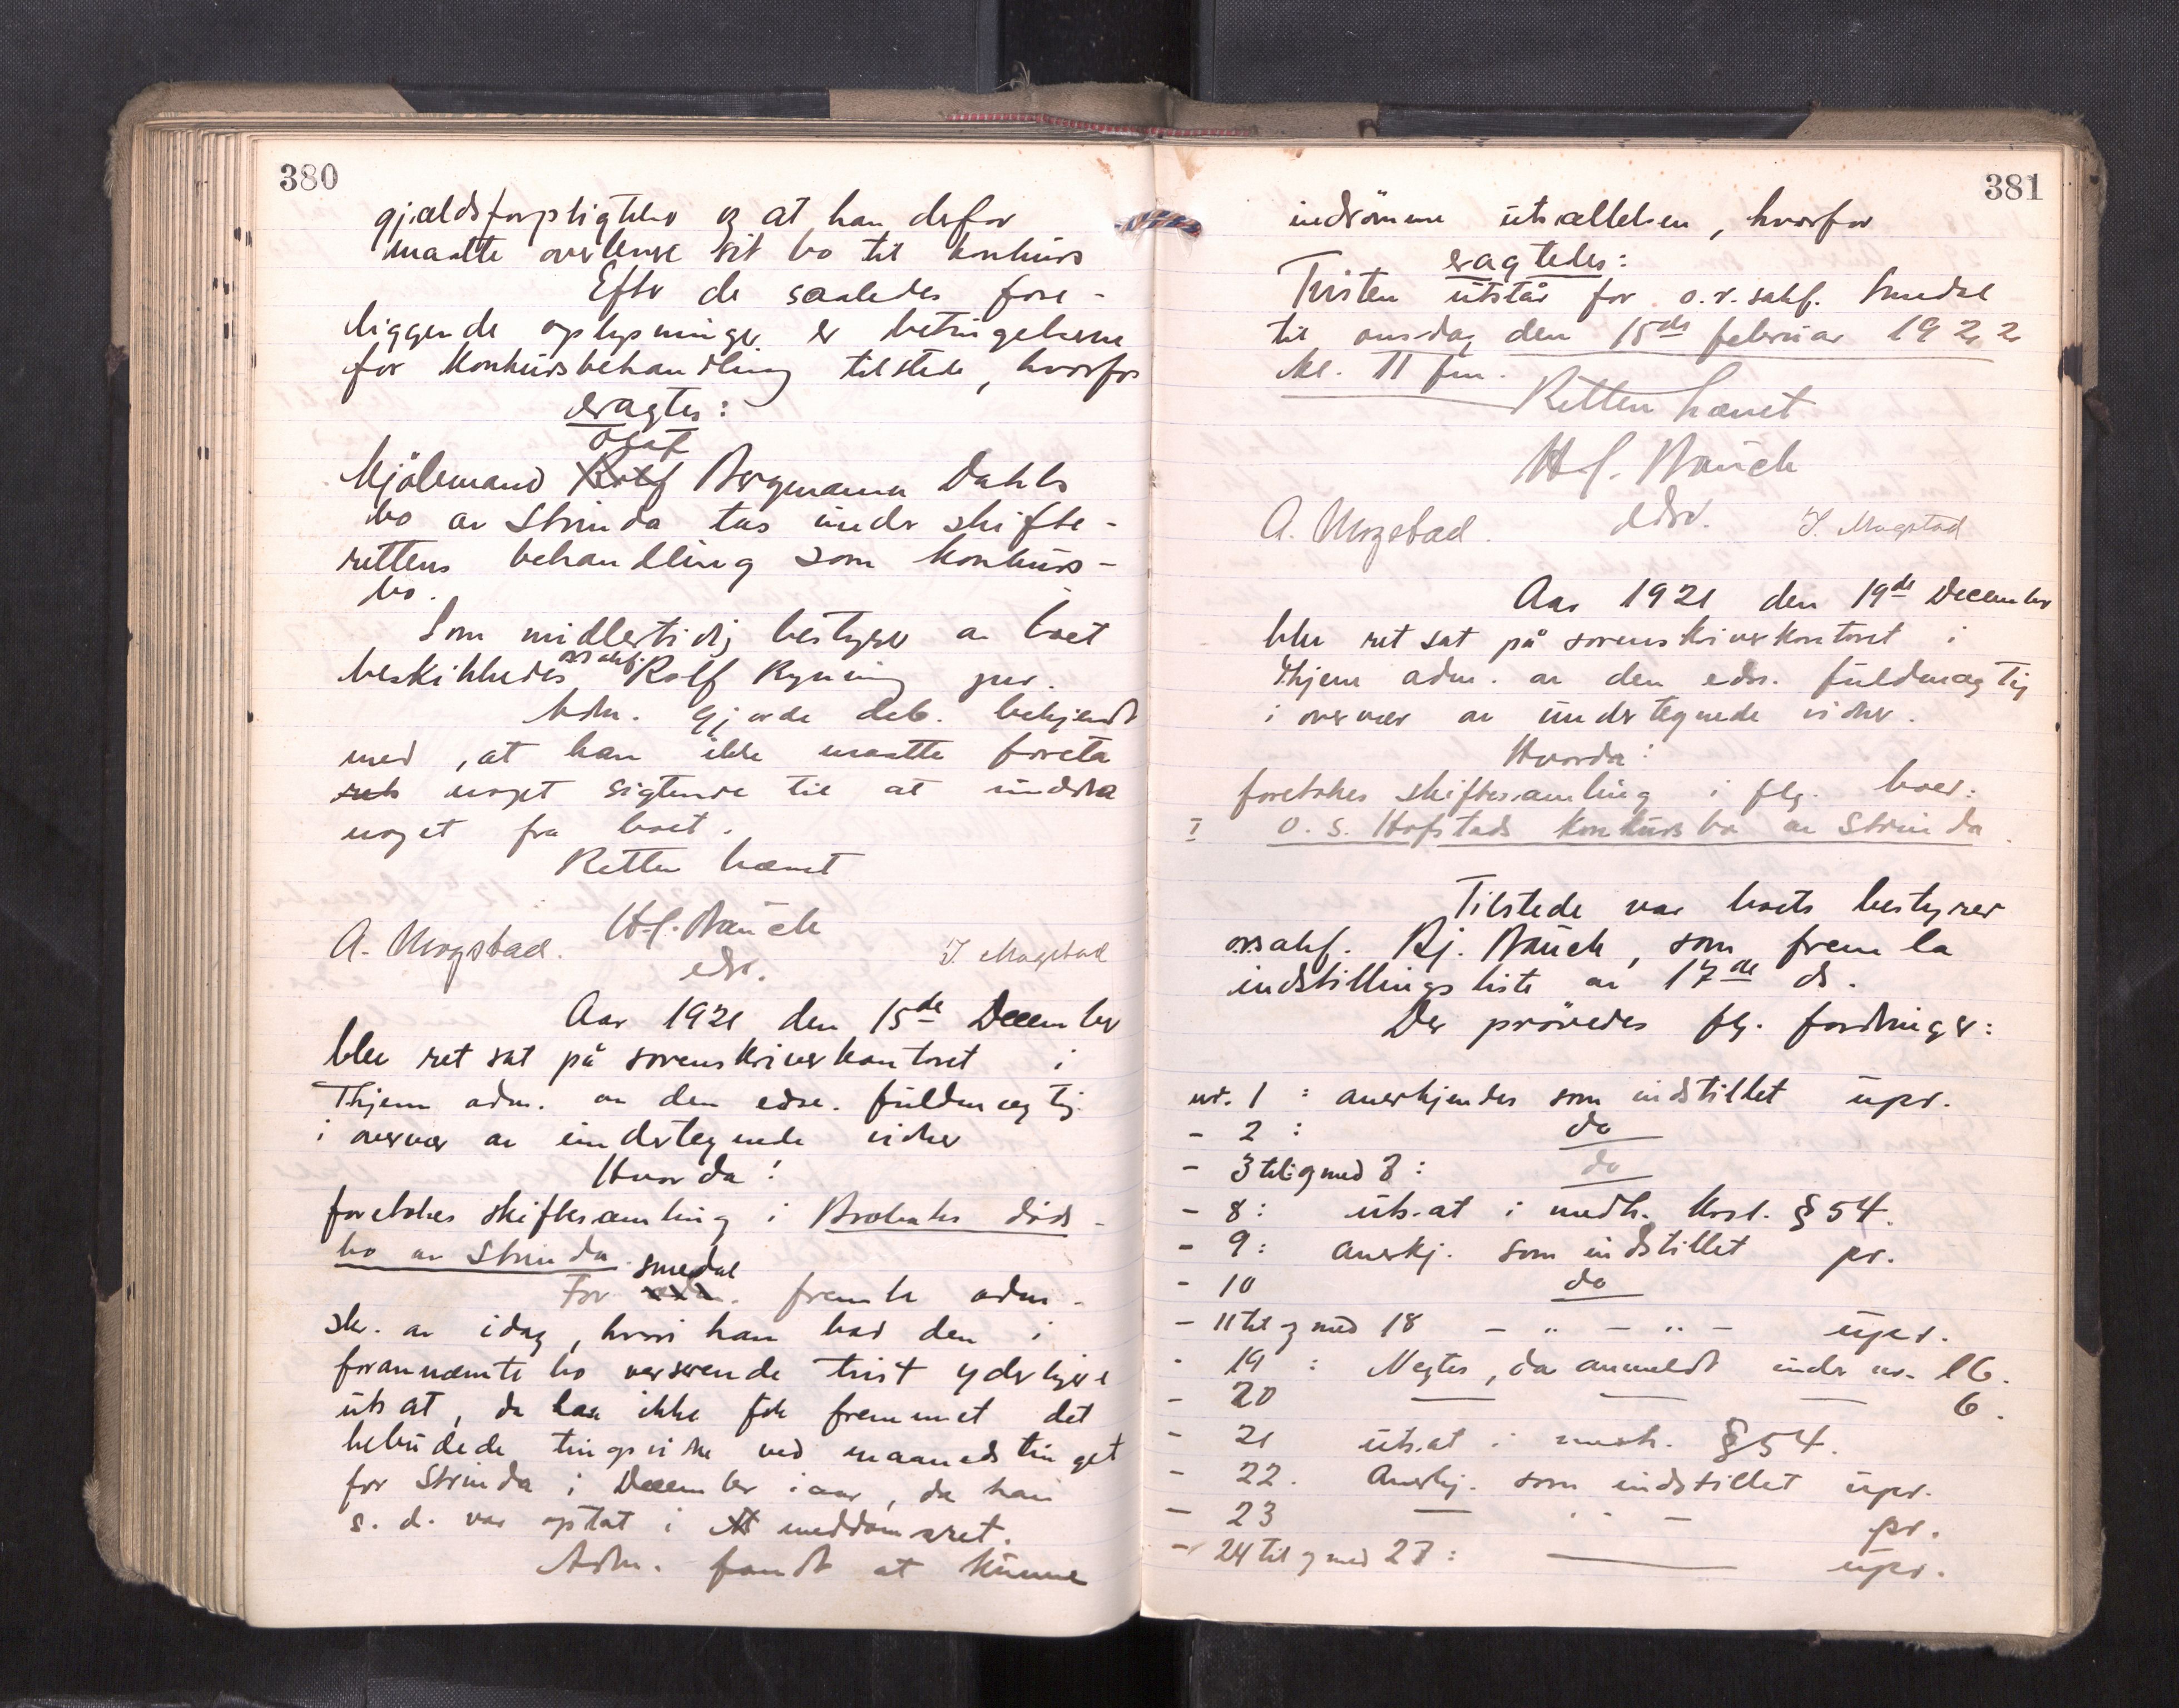 380
gjældsforpligtelser og at han derfor
maatte overlevere sit bo til konkurs
Efter de saaledes fore-
liggende oplysninger er betingelserne
for konkursbehandling tilstede, hvorfor
eragtes:
Olaf
Kjøbmand Rolf Bergmann Dahls
bo av Strinda tas under skifte-
rettens behandling som konkurs-
bo.
Som midlertidig bestyrer av boet
beskikkedes orsakf. Rolf Ryning jur.
Adm. gjorde deb. bekjendt
med, at han ikke maatte foreta
noget sigtende til at unddra
noget fra boet.
Retten hævet
H.f. Bauck
A. Mogstad. edsv. I. Mogstad
Aar 1921 den 15de December
blev ret sat på sorenskriverkontoret i
Thjem adm. av den edsv. fuldmægtig
i overvær av undertegnede vidner
Hvorda:
foretokes skiftesamling i Brobaks døds-
bo av Strinda.
smedal
For adm. fremla adm.
skr. av idag, hvori han bad den i
forannævnte bo verserende tvist yderligere
utsat, da han ikke fik fremmet det
bebudede tingsvidne ved maanedstinget
for Strinda i December iaar, da han
s. d. var optat i meddomsret.
Adm. fandt at kunne
381
indrømme utsættelsen, hvorfor
eragtedes:
Tvisten utstår for o.r.sakf. Smedal
til onsdag den 15de februar 1922
kl. 11 fm.
Retten hævet
H.f. Bauck
A. Mogstad. edsv. I. Mogstad
Aar 1921 den 19de December
blev ret sat på sorenskriverkontoret i
Thjem adm. av den edsv. fuldmægtig
i overvær av undertegnede vidner.
Hvorda:
foretokes skiftesamling i flg. boer:
I O. S. Hofstads konkursbo av Strinda.
Tilstede var boets bestyrer
orsakf. Bj. Bauck, som fremla
indstillingsliste av 17de ds.
Der prøvedes flg. fordringer:
nr. 1 : anerkjendes som indstillet upr.
- 2 : do
- 3 til og med 7 : do
- 8 : utsat i medh. Krsl. § 54.
- 9 : anerkj. som indstillet pr.
- 10 do
- 11 til og med 18 - " - " - upr.
- 19 : Negtes, da anmeldt under nr. 16.
- 20 — — — 6.
- 21 utsat i medh. § 54.
- 22. Anerkj. som indstillet upr.
- 23 — " - pr.
- 24 til og med 27 : — upr.